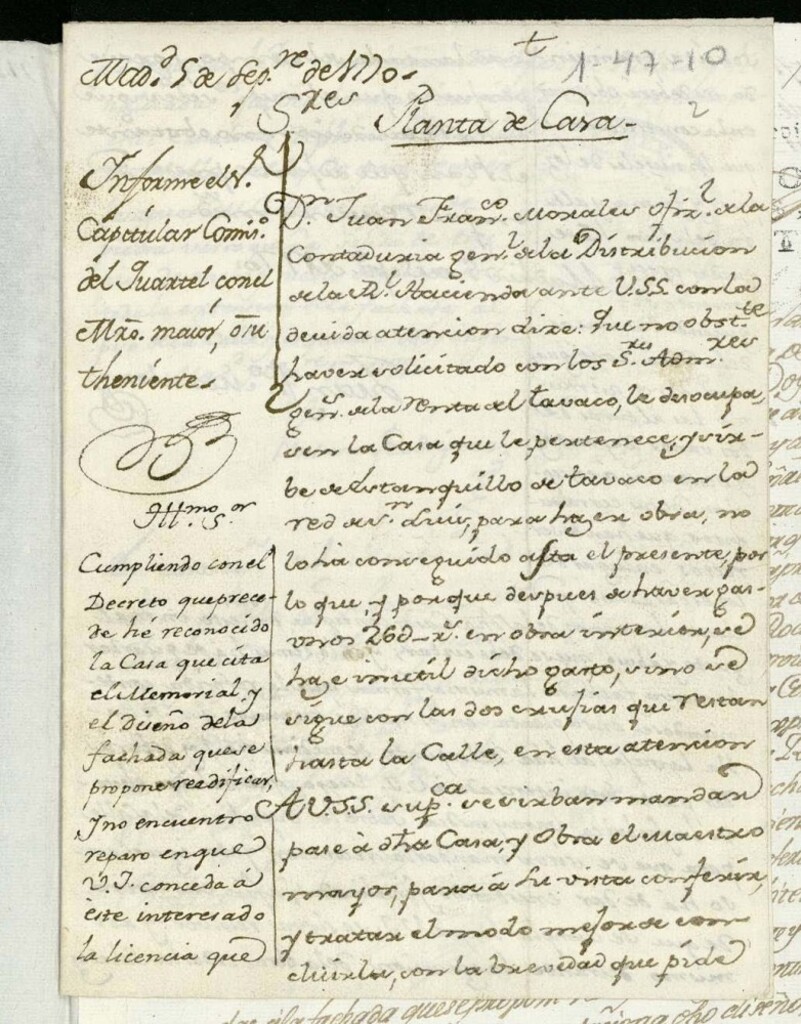 Mad.d 5 de Sep.re de 1770.
t
1-47-10
S.res
Planta de Casa-
2
Informe el S.r
Capitular Comis.o
del Quartel con el
Mro. maior, ô su
theniente.
Yll.mo S.or
Cumpliendo con el
Decreto que prece-
de hé reconocido
la Casa que cita
el Memorial, y
el Diseño dela
fachada que se
propone reedificar,
y no encuentro
reparo en que
V.I. conceda â
este interesado
la licencia que
D.n Juan Fran.co Morales ofiz.l de la
Contaduria gen.l de la Distribucion
de la R.l Hacienda ante V.S.S. con la
devida atencion dize: Que no obst.te
haver solicitado con los S.res Adm.res
gen.s de la renta del tavaco, le desocupa-
sen la Casa que le pertenece, y sir-
be de Estanquillo de tavaco en la
red de S.n Luis, para hazer obra, no
lo ha conseguido asta el presente, por
lo que, y porque despues de haver gas-
tados 26@ r.s en obra interior, se
haze inutil dicho gasto, sino se
sigue con las dos crugias que restan
hasta la Calle, en esta atencion
A V.S.S. sup.ca se sirban mandar
pase â dha Casa, y Obra el Maestro
mayor, para â su vista conferir,
y tratar el modo mejor de con-
cluirla, con la brevedad que pide
dar â la fachada que se propone